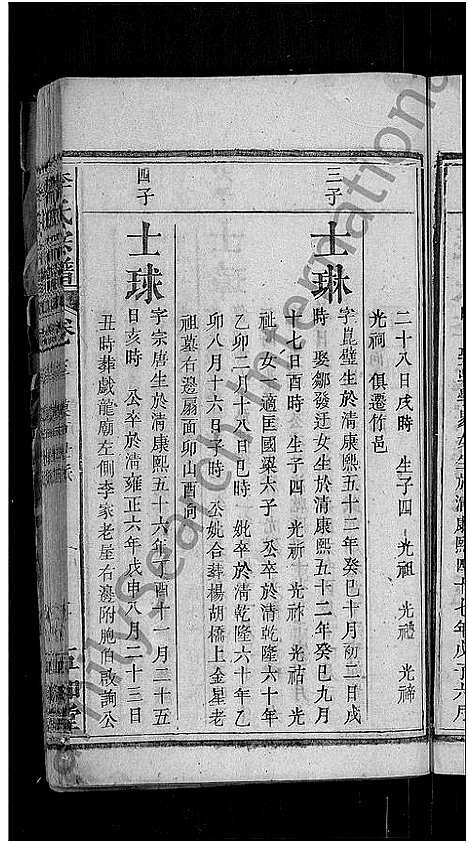 二十八日戌時 生子四 光祖 光禮 光禘
光祠 俱遷竹邑
三子
士琳
字崑璧生於清康熙五十二年癸巳十月初二日戌
時 娶鄒發迁女生於清康熙五十二年癸巳九月
十七日酉時 生子四 光祈 光祢 光祜 光
祉 女一適匡國粱六子 公卒於清乾隆六十年
乙卯二月十八日巳時 妣卒於清乾隆六十年乙
卯八月十六日子時 公妣合葬楊胡橋上金星老
祖墓右邊扇面卯山酉向
四子
士球
字宗唐生於清康熙五十六年丁酉十一月二十五
日亥時 公卒於清雍正六年戊申八月二十三日
丑時葬戲龍廟左側李家老屋右邊附胞伯啟詢公
李氏宗譜
卷
FamilySearch International